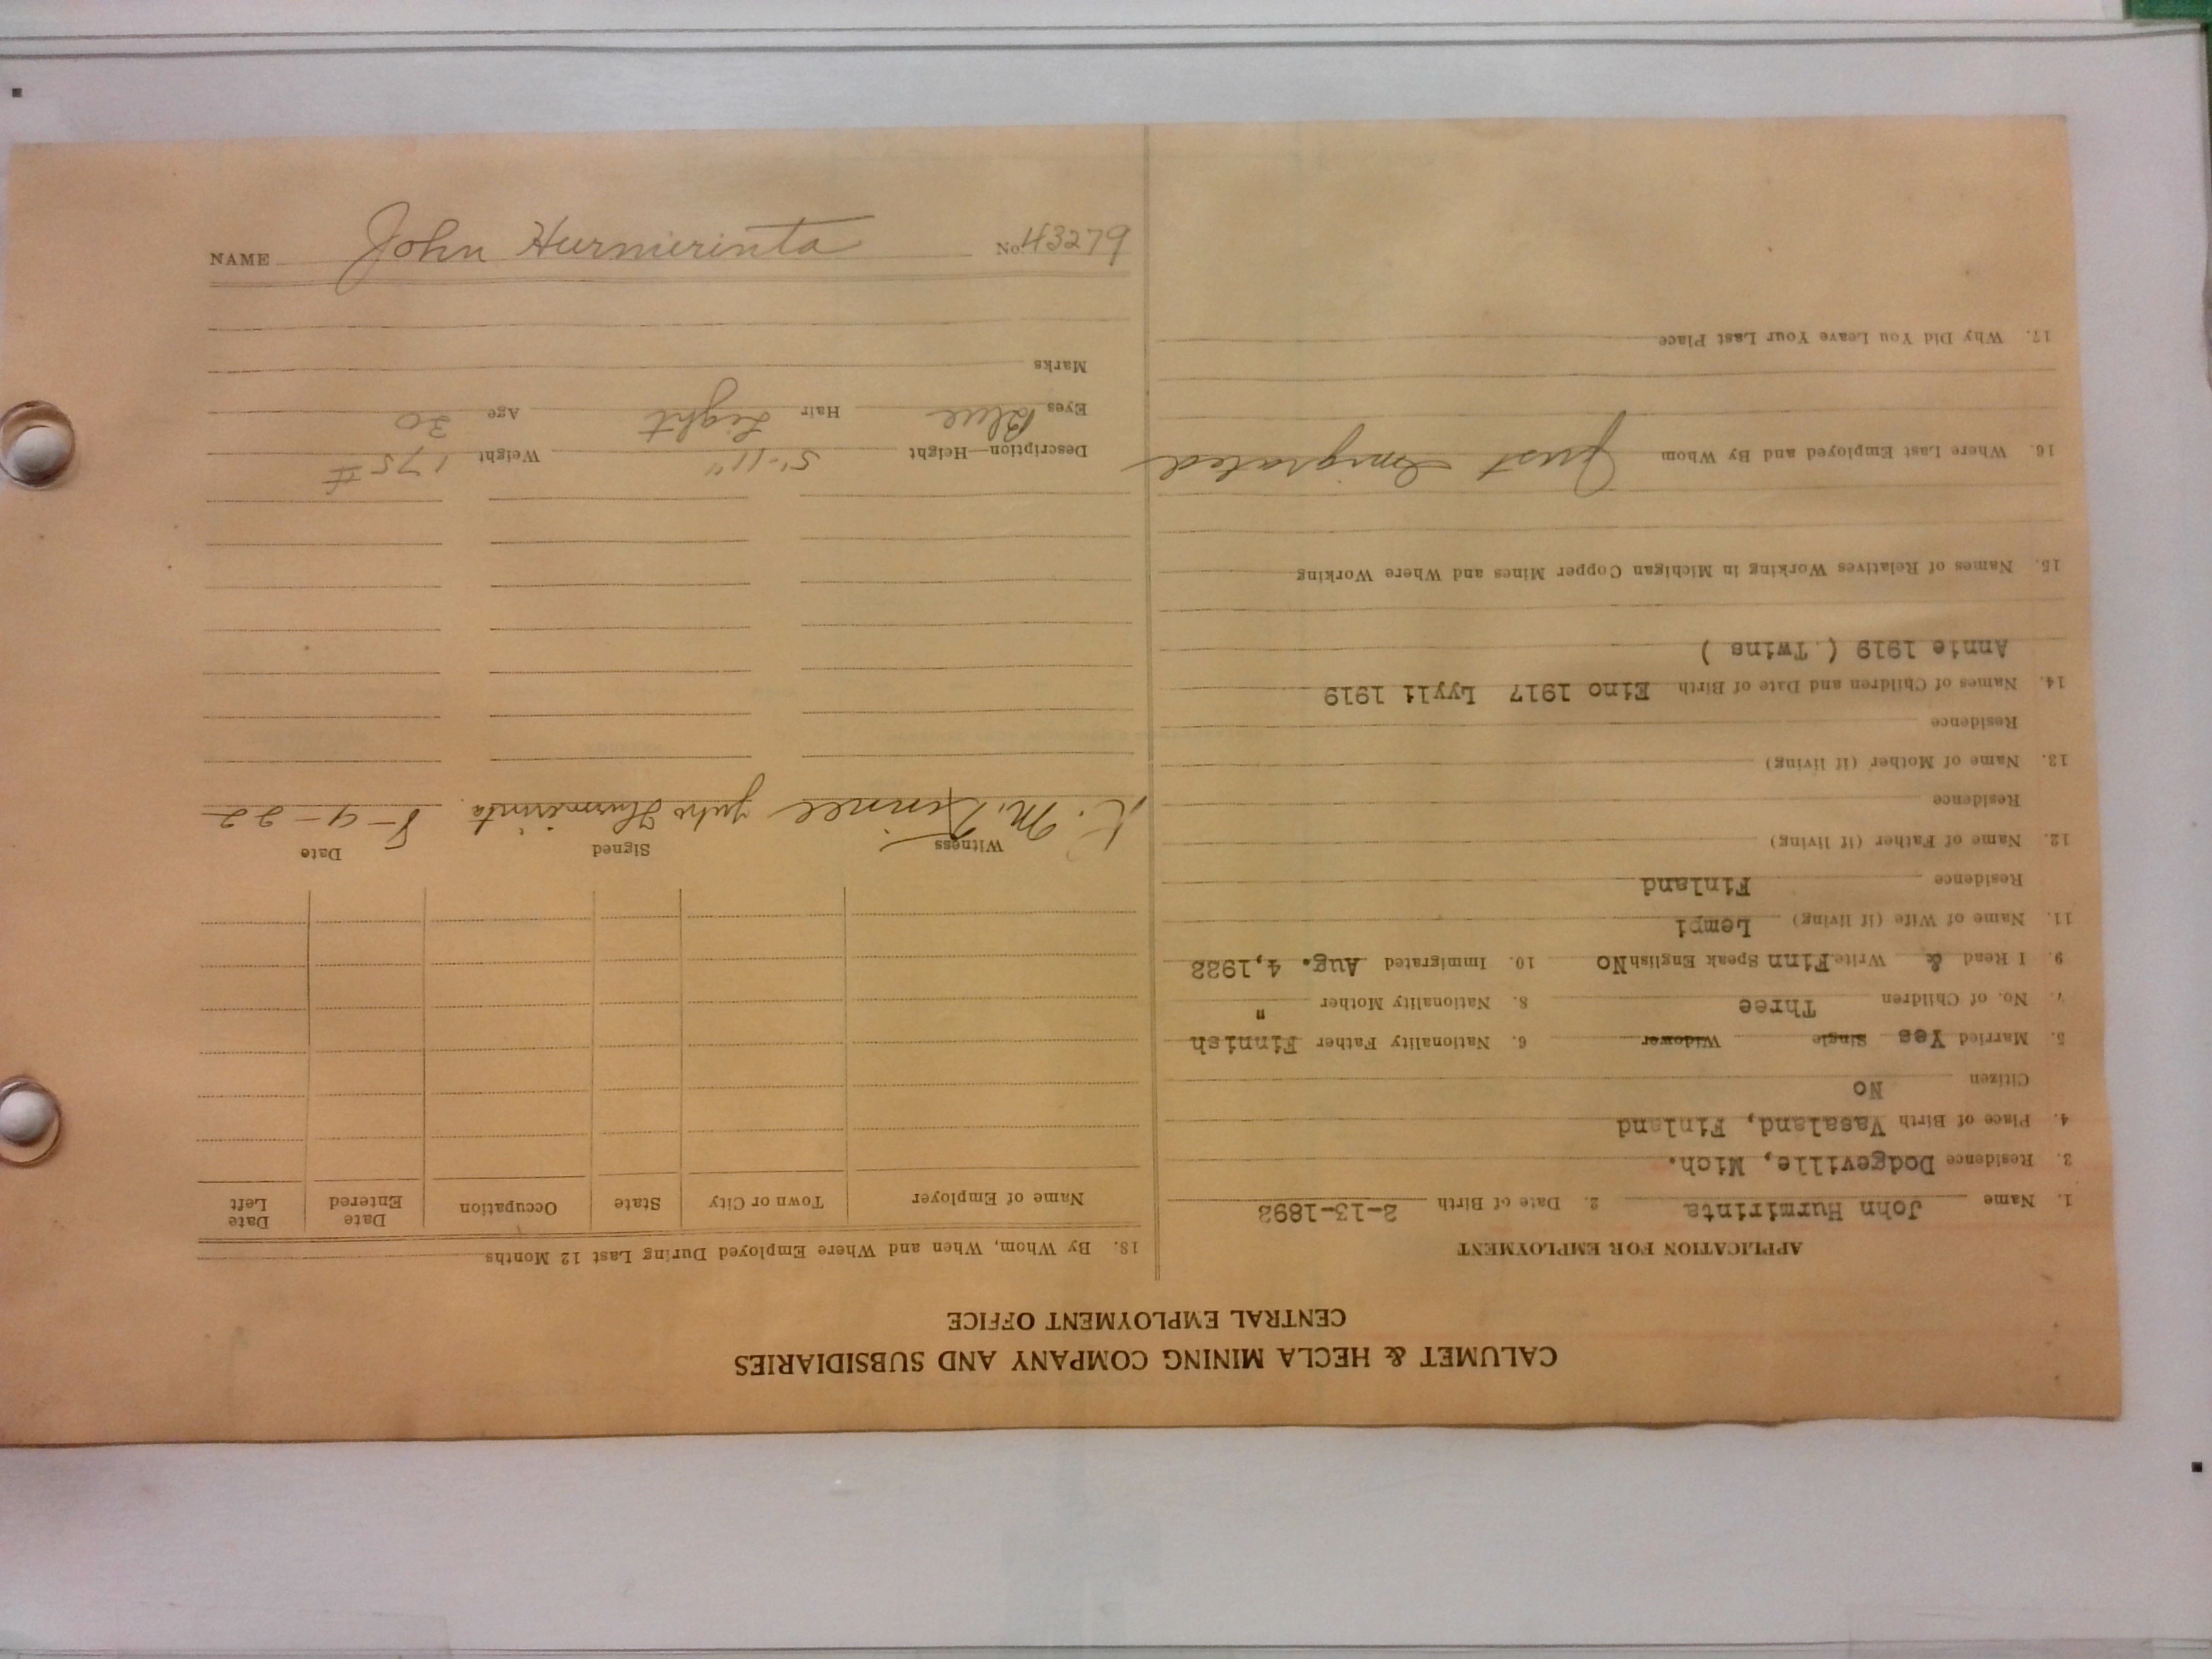 CALUMET & HECLA MINING COMPANY AND SUBSIDIARIES
CENTRAL EMPLOYMENT OFFICE
APPLICATION FOR EMPLOYMENT
1. Name John Hurmirinta 2. Date of Birth 2-13-1892
3. Residence Dodgeville, Mich.
4. Place of Birth Vasaland, Finland
Citizen No
5. Married Yes Single Widower 6. Nationality Father Finnish
7. No. of Children Three 8. Nationality Mother "
9. I Read & Write Finn Speak English No 10. Immigrated Aug. 4,1922
11. Name of Wife (if living) Lempi
Residence Finland
12. Name of Father (if living)
Residence
13. Name of Mother (if living)
Residence
14. Names of Children and Date of Birth Eino 1917 Lyyli 1919
Annie 1919 ( Twins )
15. Names of Relatives Working in Michigan Copper Mines and Where Working
16. Where Last Employed and By Whom Just Imigrated
17. Why Did You Leave Your Last Place
18. By Whom, When and Where Employed During Last 12 Months
Name of Employer Town or City State Occupation Date Entered Date Left
Witness Signed Date
Juho Hurmerinta 8-9-22
Description—Height 5'-11" Weight 175 #
Eyes Blue Hair Light Age 30
Marks
NAME John Hurmerinta No. 43279